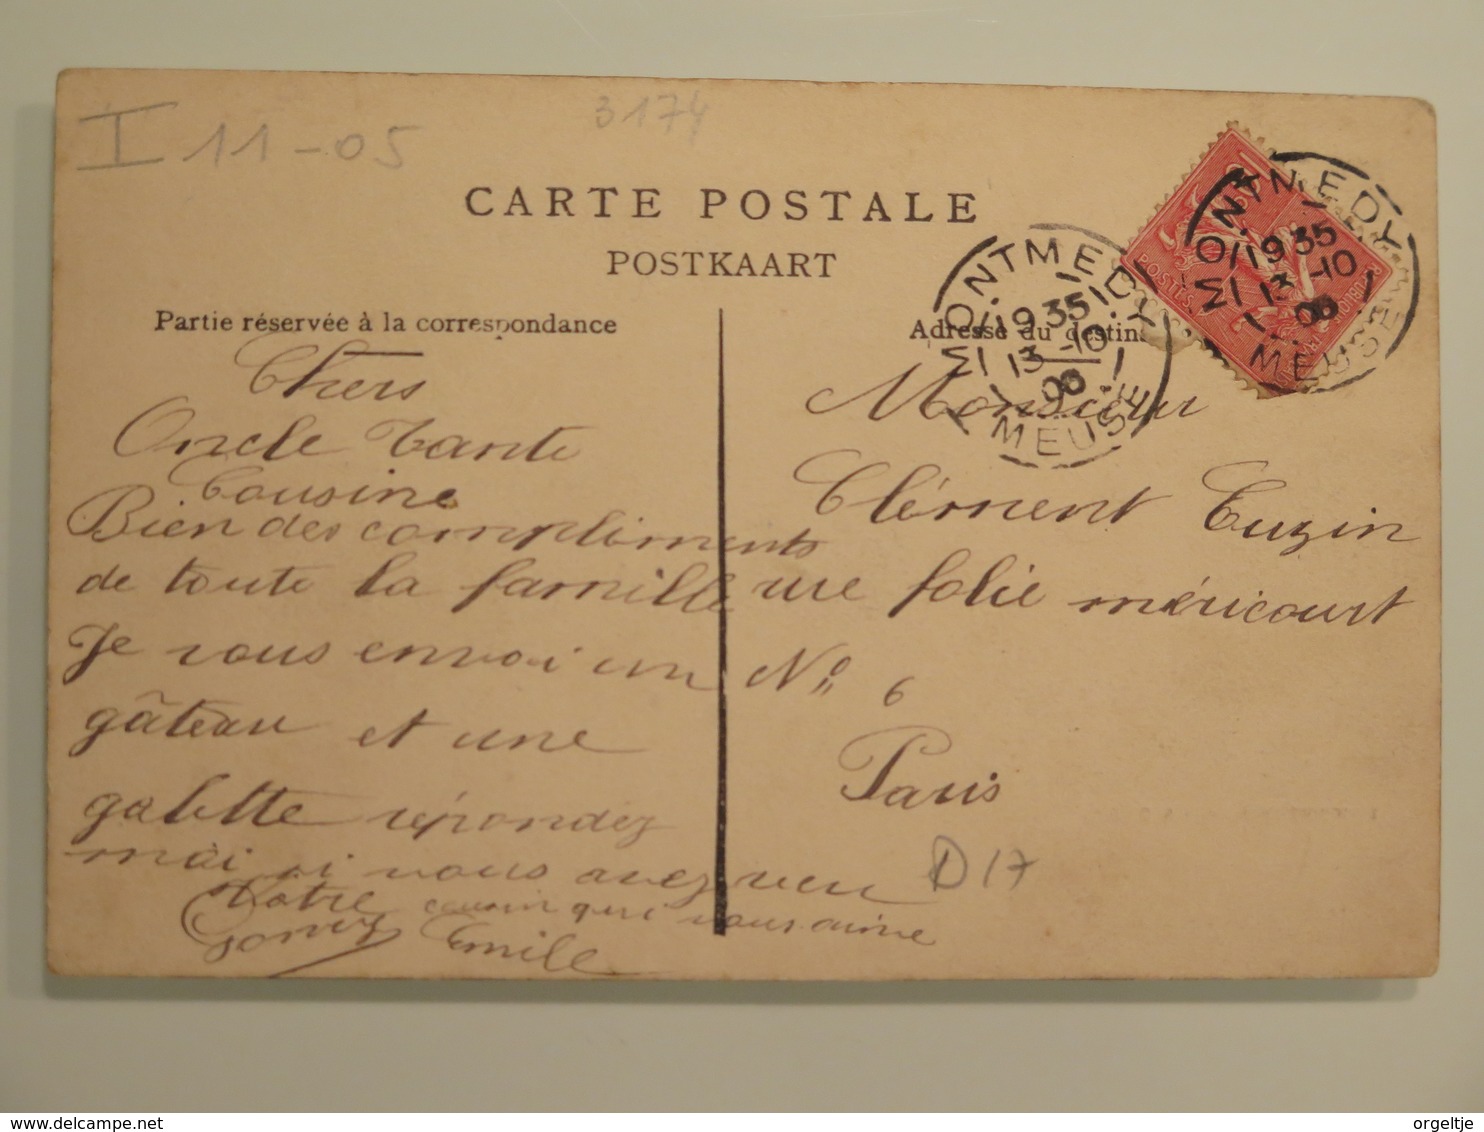 I 11-05
3174
CARTE POSTALE
POSTKAART
Partie réservée à la correspondance
Adresse du destin
MONTMEDY
19 35
13 -10
06
MEUSE
MONTMEDY
19 35
13 -10
06
MEUSE
10
POSTES
Chers
Oncle Tante
Cousine
Bien des compliments
de toute la famille
Je vous envoi un
gâteau et une
galette répondez
moi si vous avez reçu
Votre cousin qui vous aime
Emile
Monsieur
Clément Tuzin
rue folie méricourt
No 6
Paris
D17
delcampe.net
orgeltje